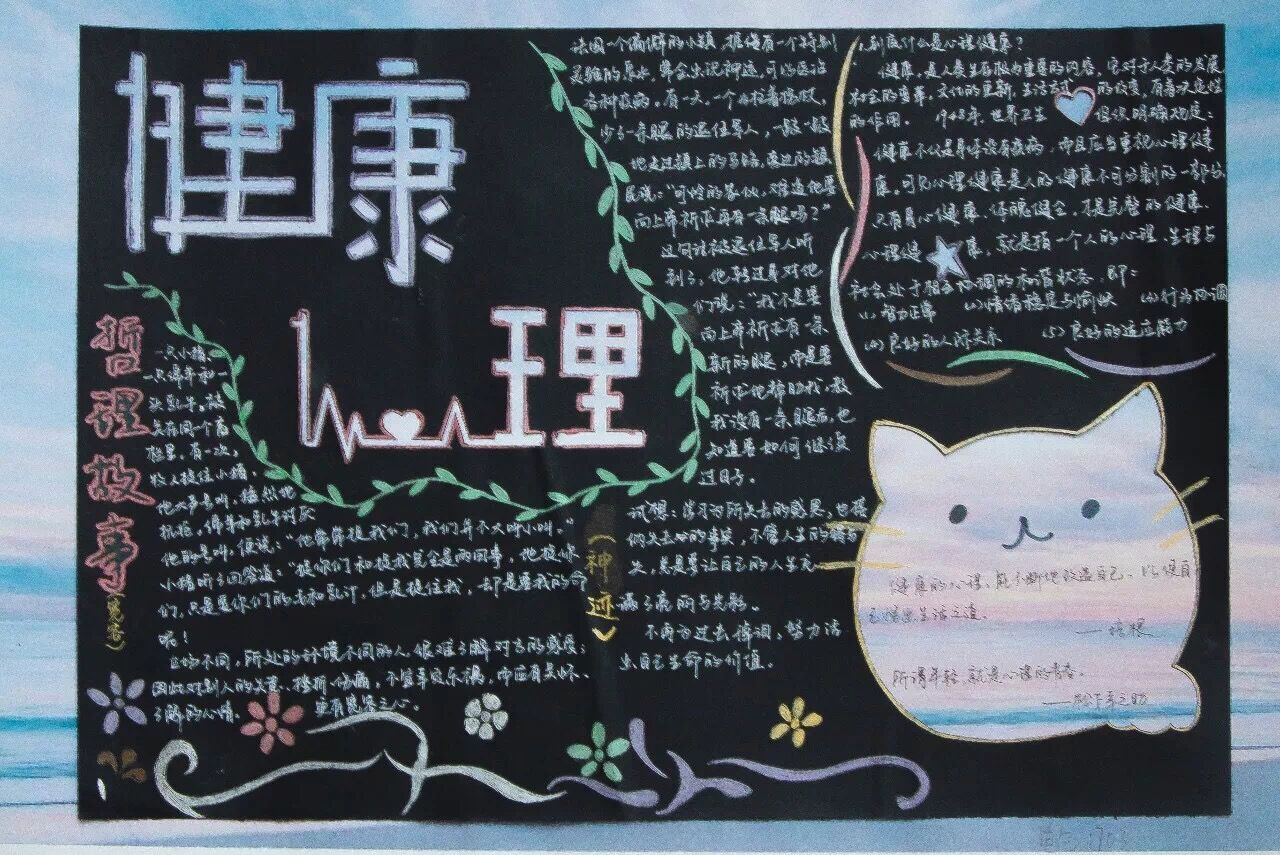 健康
心理
哲理故事
一只小猪、
一只绵羊和一
头乳牛，被
关在同一个畜
栏里。有一次，
牧人捉住小猪，
他大声号叫，猛烈地
抗拒。绵羊和乳牛讨厌
他的号叫，便说："他常常捉我们，我们并不大呼小叫。"
小猪听了回答道："捉你们和捉我完全是两回事，他捉你
们，只是要你们的毛和乳汁，但是捉住我，却是要我的命
呢！
立场不同，所处的环境不同的人，很难了解对方的感度；
因此对别人的失意、挫折、伤痛，不宜幸灾乐祸，而应有关怀、
了解的心情。要有宽容之心。
(宽容)
法国一个偏僻的小镇，据传有一个特别
灵验的泉水，常会出现神迹，可以医治
各种疾病。有一天，一个拄着拐杖，
少了一条腿的退伍军人，一跛一跛
地走过镇上的马路，旁边的镇
民说："可怜的家伙，难道他要
向上帝祈求再有一条腿吗？"
这句话被退伍军人听
到了，他转过身对他
们说："我不是要
向上帝祈求有一条
新的腿，而是要
祈求他帮助我，教
我没有一条腿后，也
知道要如何继续
过日子。
(神迹)
试想：学习为所失去的感恩，也接
纳失去的事实，不管人生的得与
失，总是要让自己的人生充
满了亮丽与光彩。
不再为过去掉泪，努力活
出自己生命的价值。
到底什么是心理健康？
健康，是人类生存极为重要的内容，它对于人类的发展
社会的变革，文化的更新，生活方式的改变，有着决定性
的作用。1948年，世界卫生组织明确规定：
健康不仅是身体没有疾病，而且应当重视心理健
康，可见心理健康是人的健康不可分割的一部分
只有身心健康、体魄健全，才是完整的健康。
心理健康，就是指一个人的心理、生理与
社会处于相互协调的和谐状态，即：
(1) 智力正常 (2)情绪稳定与愉快 (3)行为协调
(4)良好的人际关系 (5)良好的适应能力
健康的心理，能不断地改造自己，以使自
己悟出生活之道。
——培根
所谓年轻，就是心理的青春。
——松下幸之助